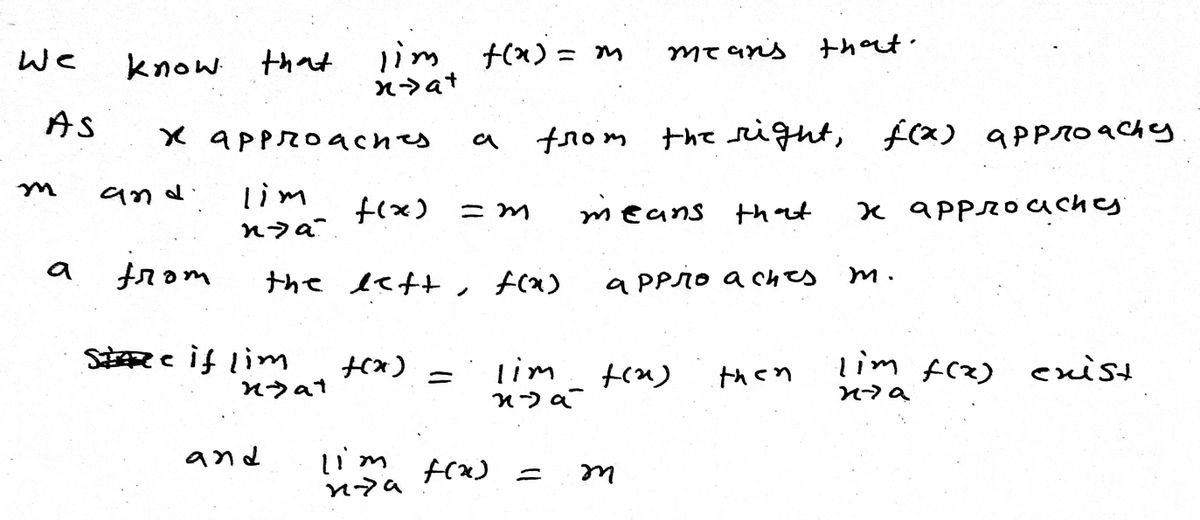 We know that lim f(x) = m means that.
x→a⁺
As x approaches a from the right, f(x) approaches
m and lim f(x) = m means that x approaches
x→a⁻
a from the left, f(x) approaches m.
if lim f(x) = lim f(x) then lim f(x) exist
x→a⁺ x→a⁻ x→a
and lim f(x) = m
x→a